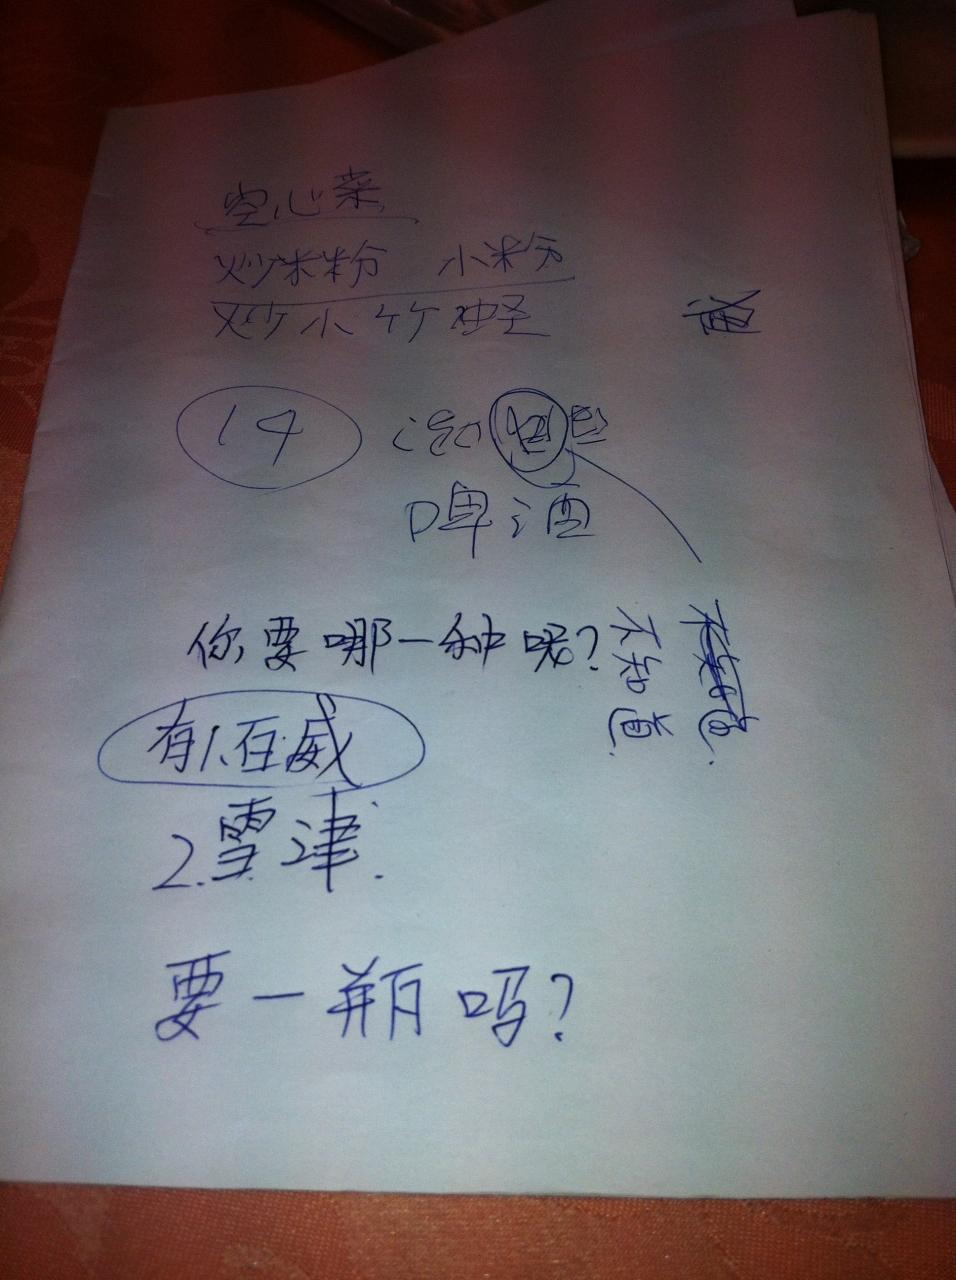 空心菜
炒米粉 小粉
炒小竹蛏
14
啤酒
你要哪一种呢?
不知道
有1.百威
2.雪津.
要一瓶吗?